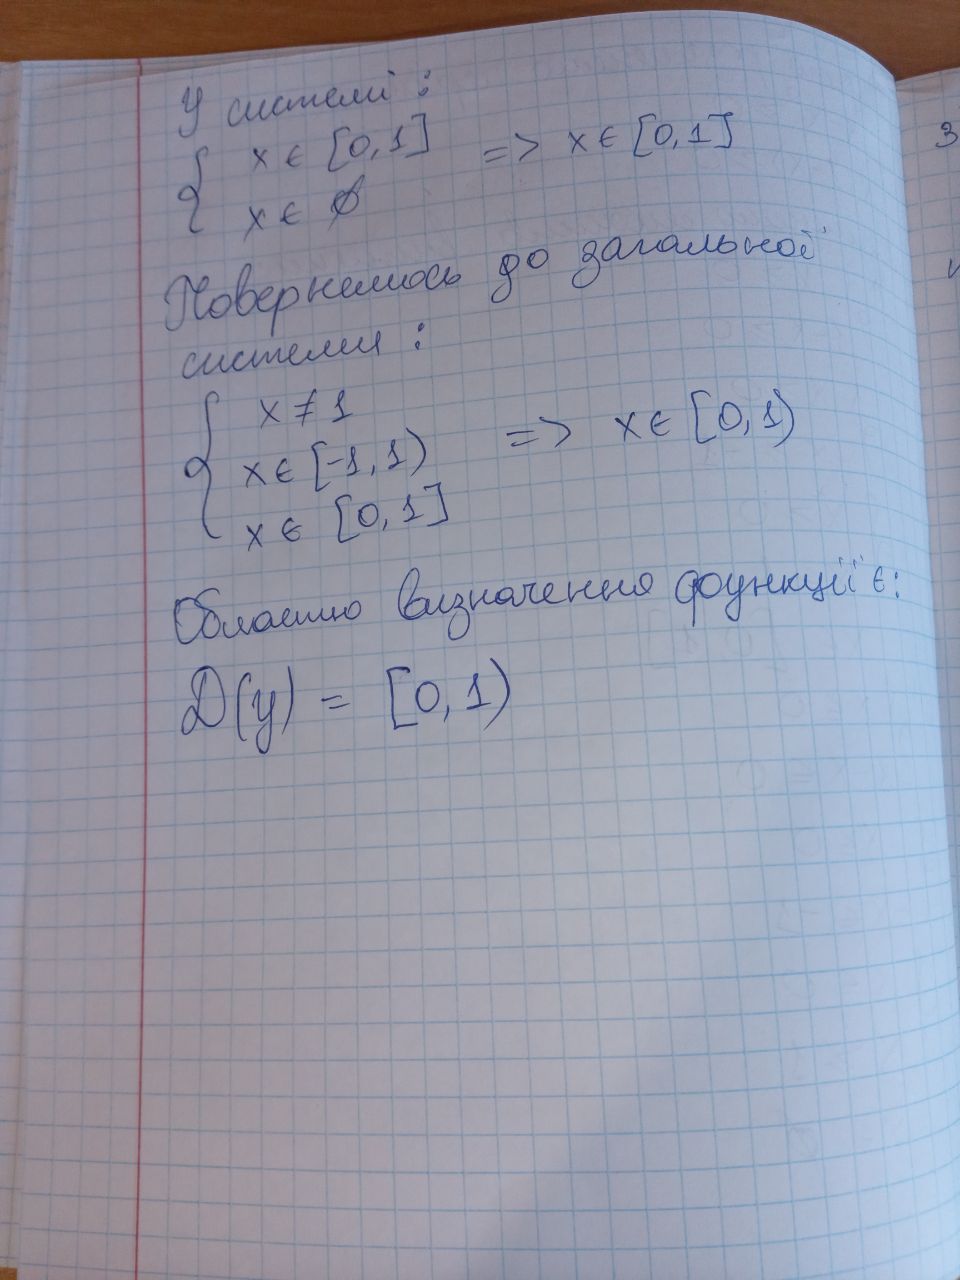 У системі :
{ x ∈ [0,1] => x ∈ [0,1]
x ∈ ∅
Повернемось до загальної
системи :
{ x ≠ 1
x ∈ [-1,1) => x ∈ [0,1)
x ∈ [0,1]
Областю визначення функції є:
D(y) = [0,1)
З